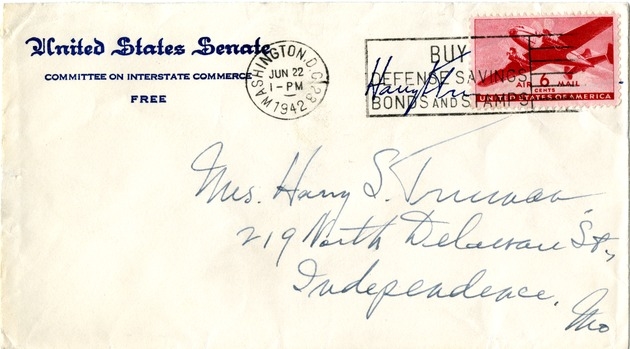 United States Senate
COMMITTEE ON INTERSTATE COMMERCE
FREE
WASHINGTON, D.C. 23
JUN 22
1-PM
1942
BUY
DEFENSE SAVINGS
BONDS AND STAMPS
Harry
AIR MAIL
6
CENTS
UNITED STATES OF AMERICA
Mrs. Harry S. Truman
219 North Delaware St.,
Independence,
Mo